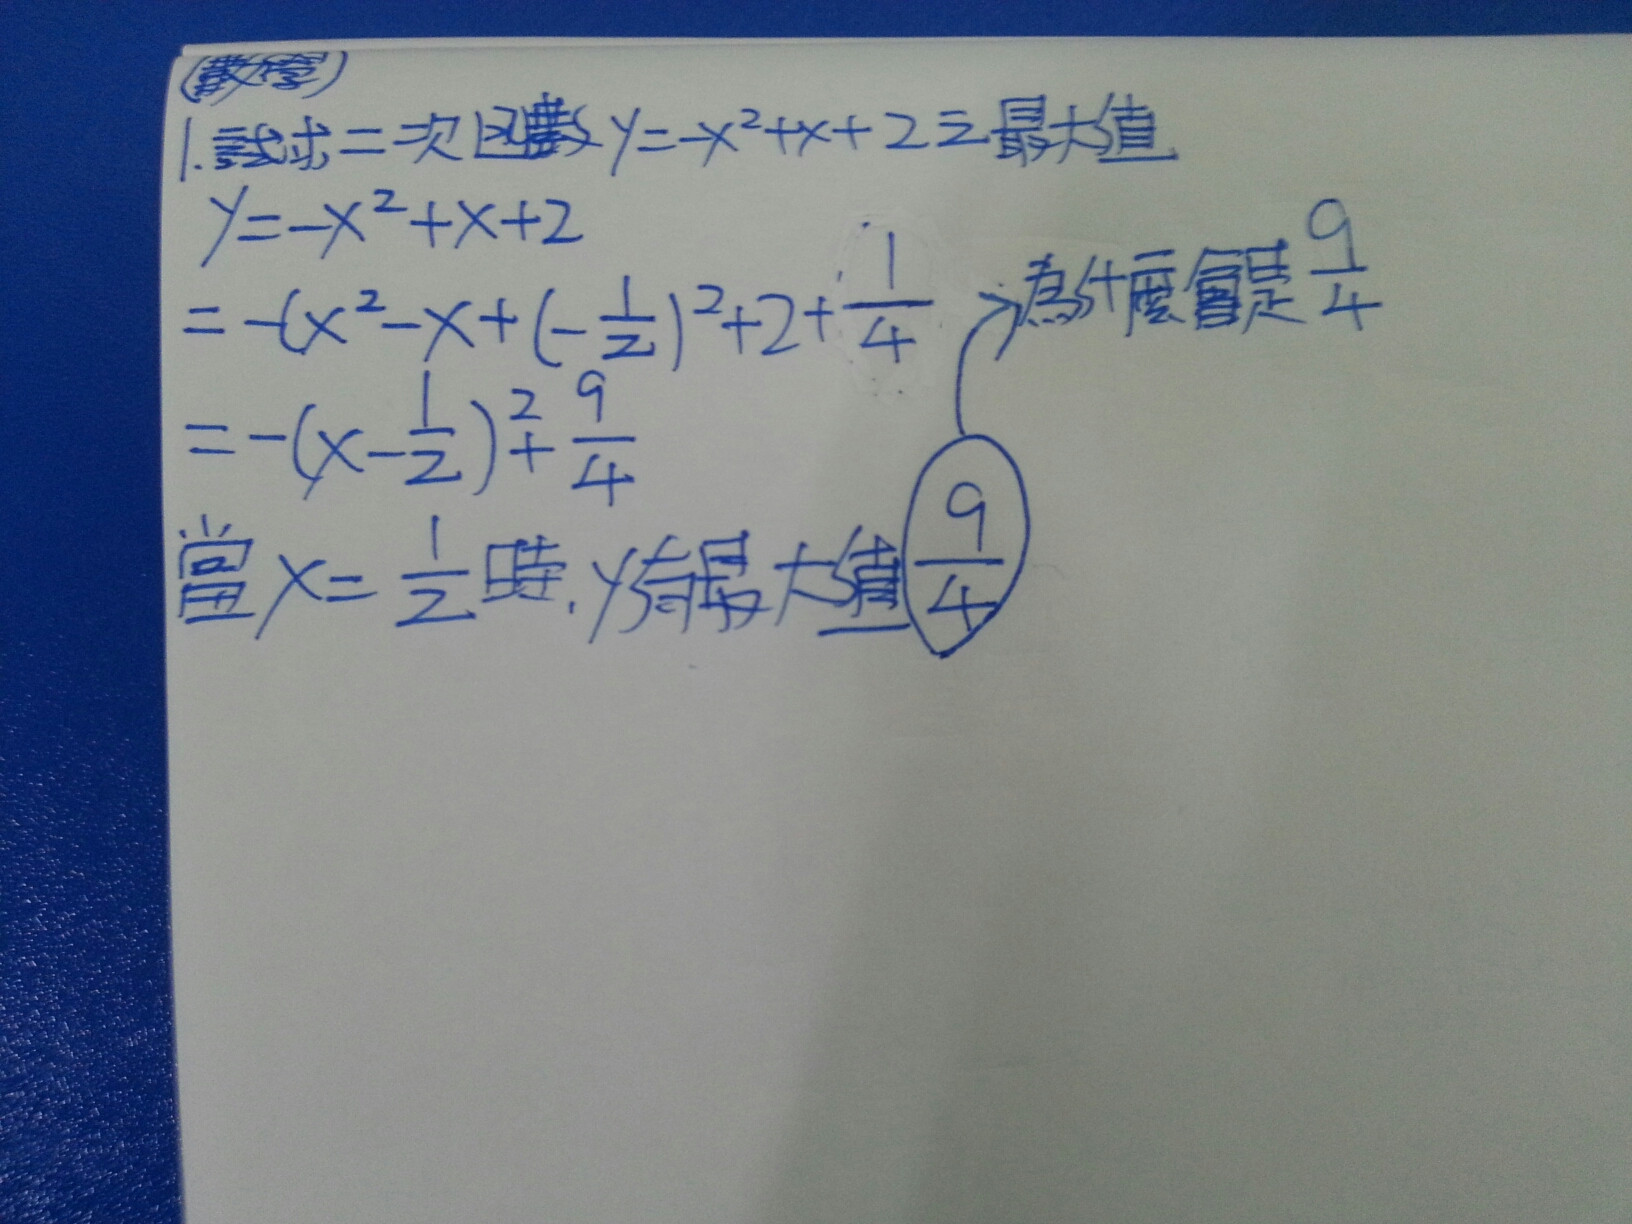 (數學)
1. 試求二次函數 y=-x²+x+2之最大值
y=-x²+x+2
=-(x²-x+(-1/2)²+2+1/4
=-(x-1/2)²+9/4
當x=1/2時,y有最大值9/4
為什麼會是9/4